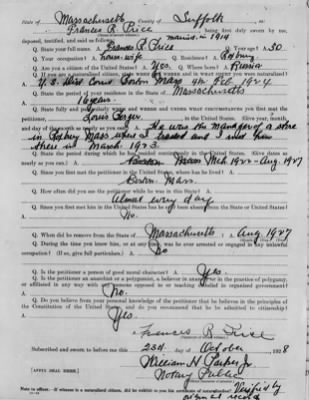 State of Massachusetts County of Suffolk, ss:
Frances R. Price being first duly sworn by me,
married in 1914
deposed, testified and said as follows:
Q. State your full name. A. Frances R. Price Q. Your age? A. 30
Q. Your occupation? A. house-wife Q. Residence? A. Roxbury
Q. Are you a citizen of the United States? A. Yes Q. Where born? A. Russia
Q. If you are a naturalized citizen, state when and in what court you were naturalized?
A. U.S. Dist. Court Boston Mass Feb 1924
Q. State the period of your residence in the State of Massachusetts
A. 16 years
Q. State fully and where and under what circumstances you first met the
petitioner, Louis in the United States. Give year, month
and day of the month as nearly as you can? A. He was the manager of a store
in Roxbury Mass where I traded and I met him
there in March 1923.
Q. State the period during which he resided continuously in the United States. Give dates as
nearly as you can? A. Boston Mass Mch 1922-Aug. 1927
Q. Since you first met the petitioner in the United States, where has he lived?
A. Boston Mass.
Q. How often did you see the petitioner while he was in this State?
A. Almost every day
Q. Since you first met him in the United States has he ever been absent from the State or United States?
A. No.
Q. When did he remove from the State of Massachusetts? A. Aug 1927
Q. During the time you knew him, or at any time, was he ever arrested or engaged in any unlawful
occupation? (If so, give full particulars.) A. No
Q. Is the petitioner a person of good moral character? A. Yes.
Q. Is the petitioner an anarchist or a polygamist, a believer in anarchy or in the practice of polygamy,
or affiliated in any way with persons opposed to or teaching disbelief in organized government?
A. No.
Q. Do you believe from your personal knowledge of the petitioner that he believes in the principles of
the Constitution of the United States, and do you recommend that he be admitted to citizenship?
A. Yes.
Frances R. Price
Subscribed and sworn to before me this 23rd day of October, 1928
William H. Parker Jr.
Notary Public
[AFFIX SEAL HERE.]
Note to officer.—If witness is a naturalized citizen, did he exhibit to you his certificate of naturalization? Verified by
record